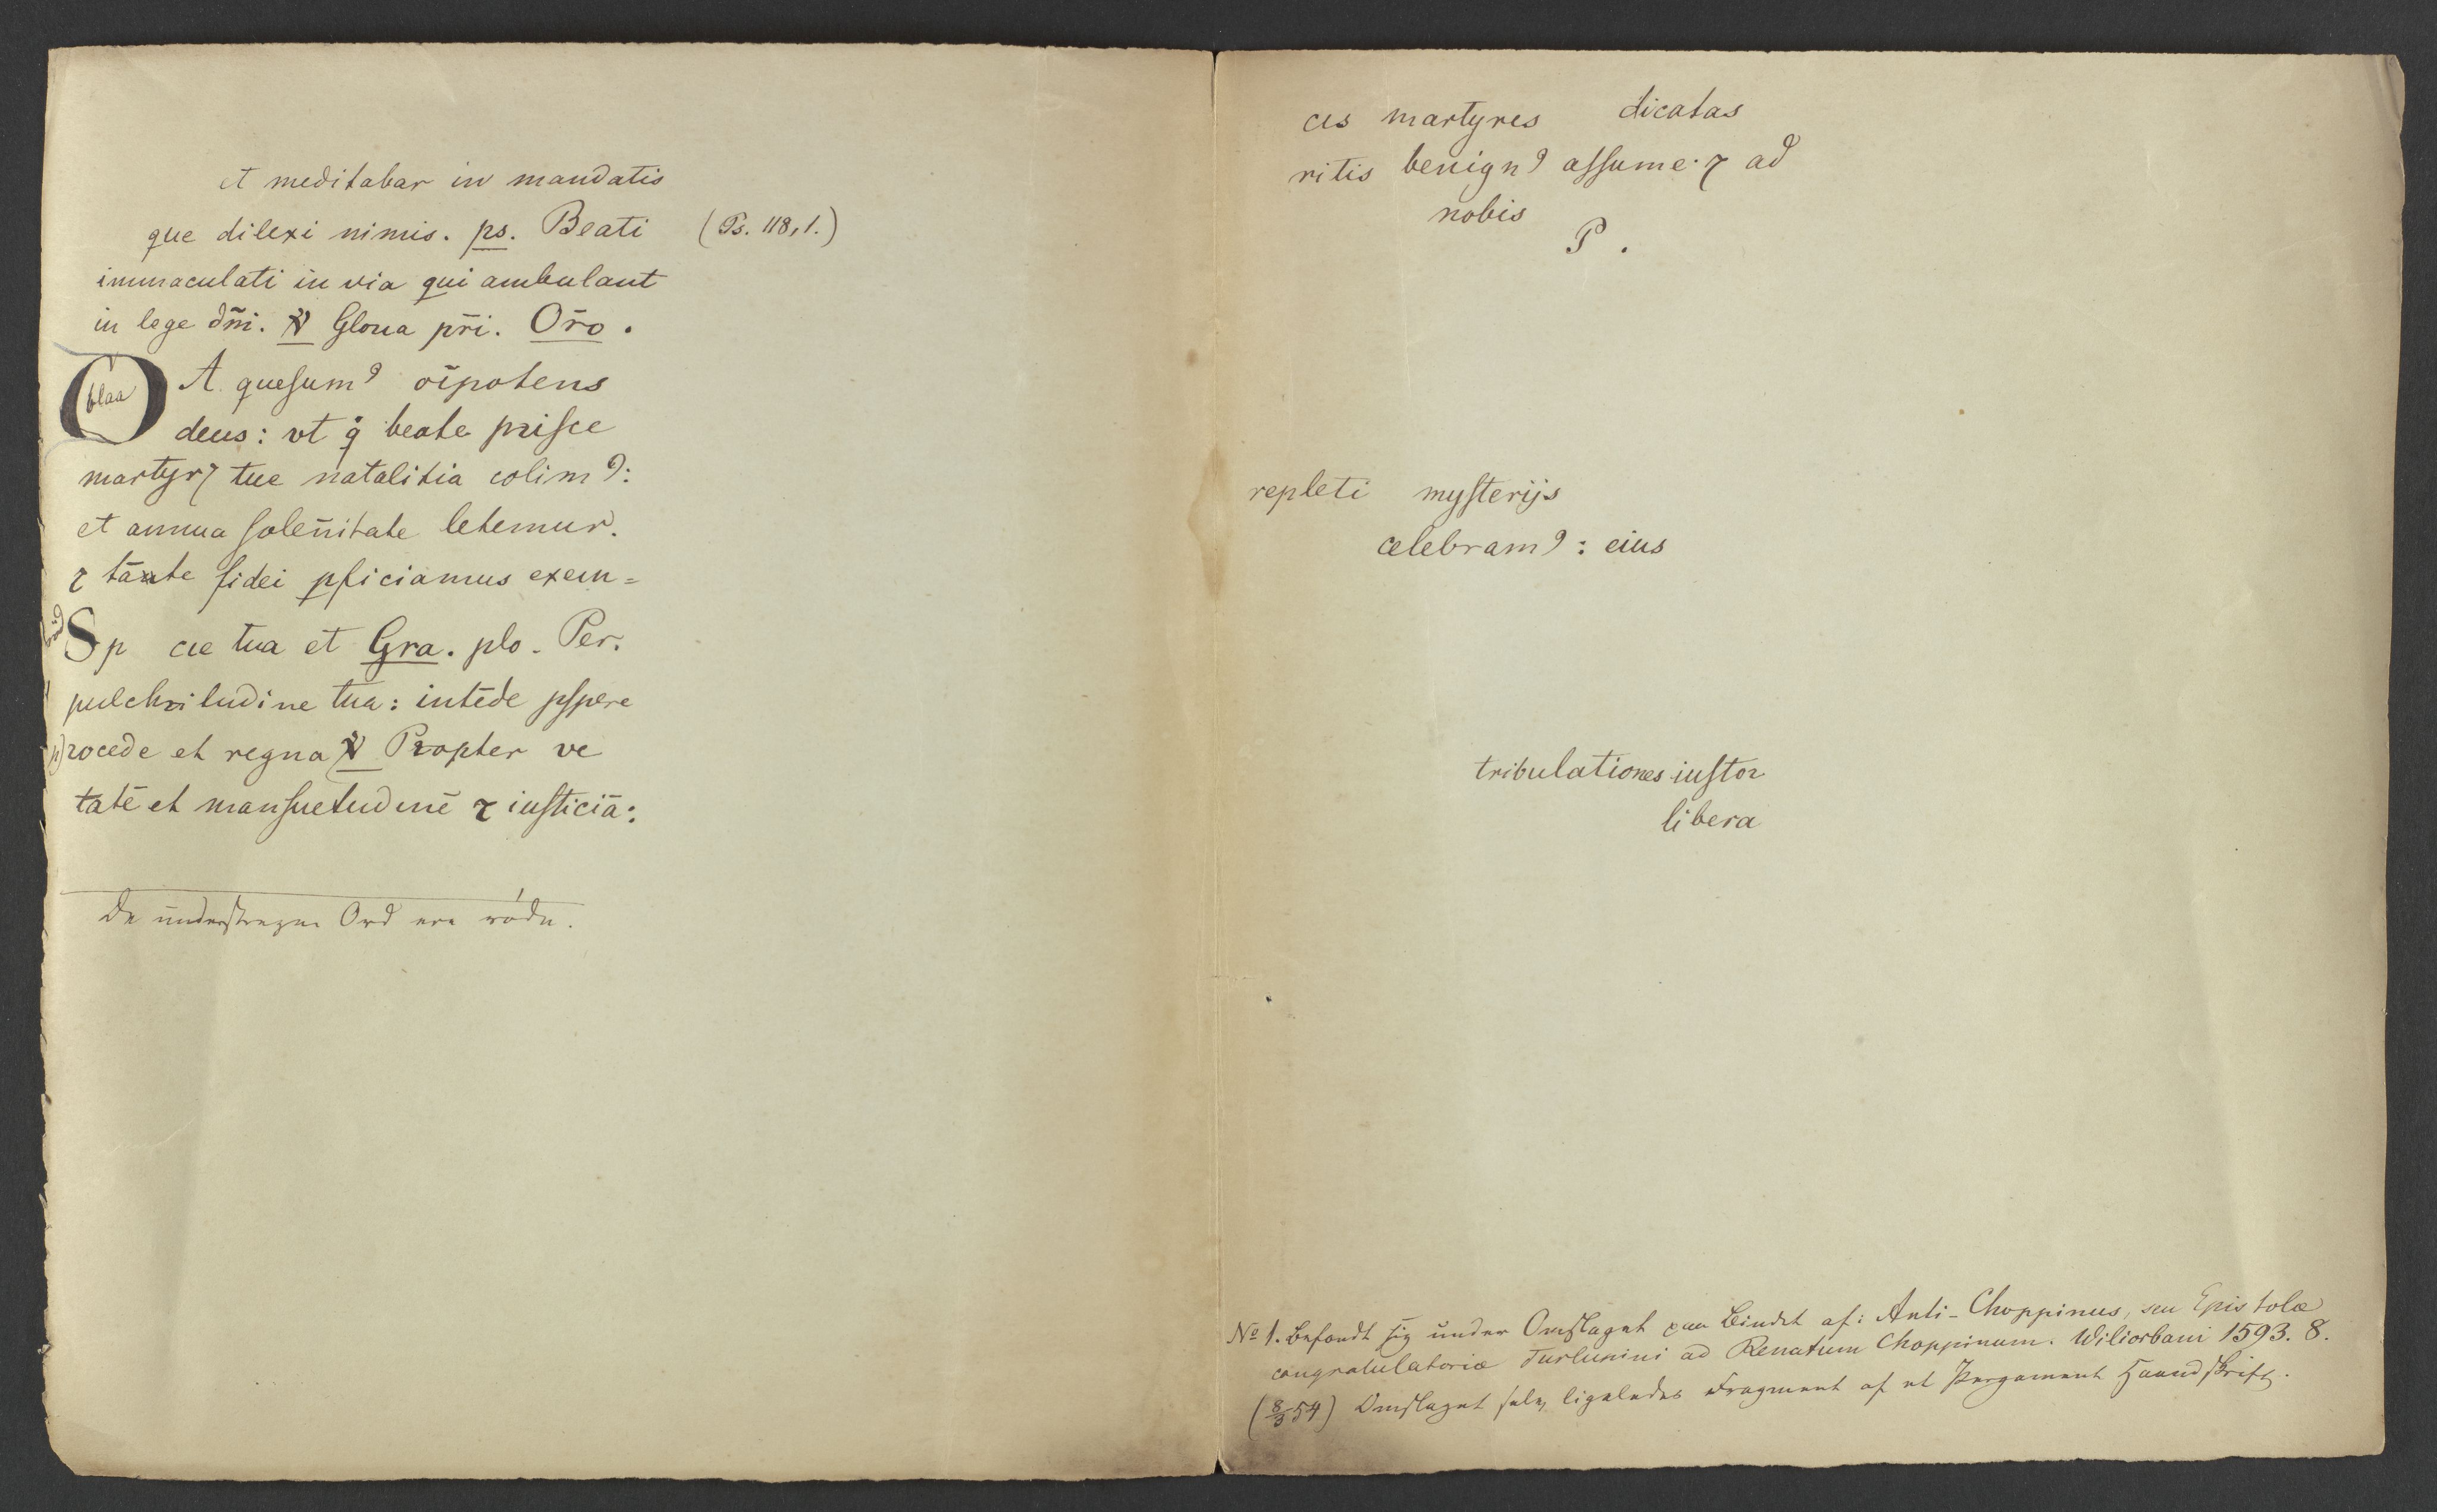 et meditabar in mandatis
que dilexi nimis. ps. Beati (Ps. 118,1.)
immaculati in via qui ambulant
in lege dn̄i. ℣ Gloria pr̄i. Or̄o.
blaa
DA quesumꝰ oīpotens
deus: vt q beate prisce
martyrꝫ tue natalitia colimꝰ:
et annua solen̄itate letemur.
⁊ tāte fidei ꝓficiamus exem=
Sp cie tua et Gra. plo. Per.
pulchritudine tua: intēde ꝓspere
procede et regna ℣ Propter ve
tatē et mansuetudinē ⁊ iusticiā:
De understregne Ord ere røde.
ces martyres dicatas
ritis benignꝰ assume· ⁊ ad
nobis
P.
repleti mysterijs
celebramꝰ: eius
tribulationes iustoꝝ
libera
No 1. Befandt sig under Omslaget paa Bindet af: Anti-Choppinus, seu Epistola
congratulatoria Turlupini ad Renatum Choppinum. Wiliorbani 1593. 8.
(8/3 54) Omslaget selv ligeledes Fragment af et Pergament Haandskrift.